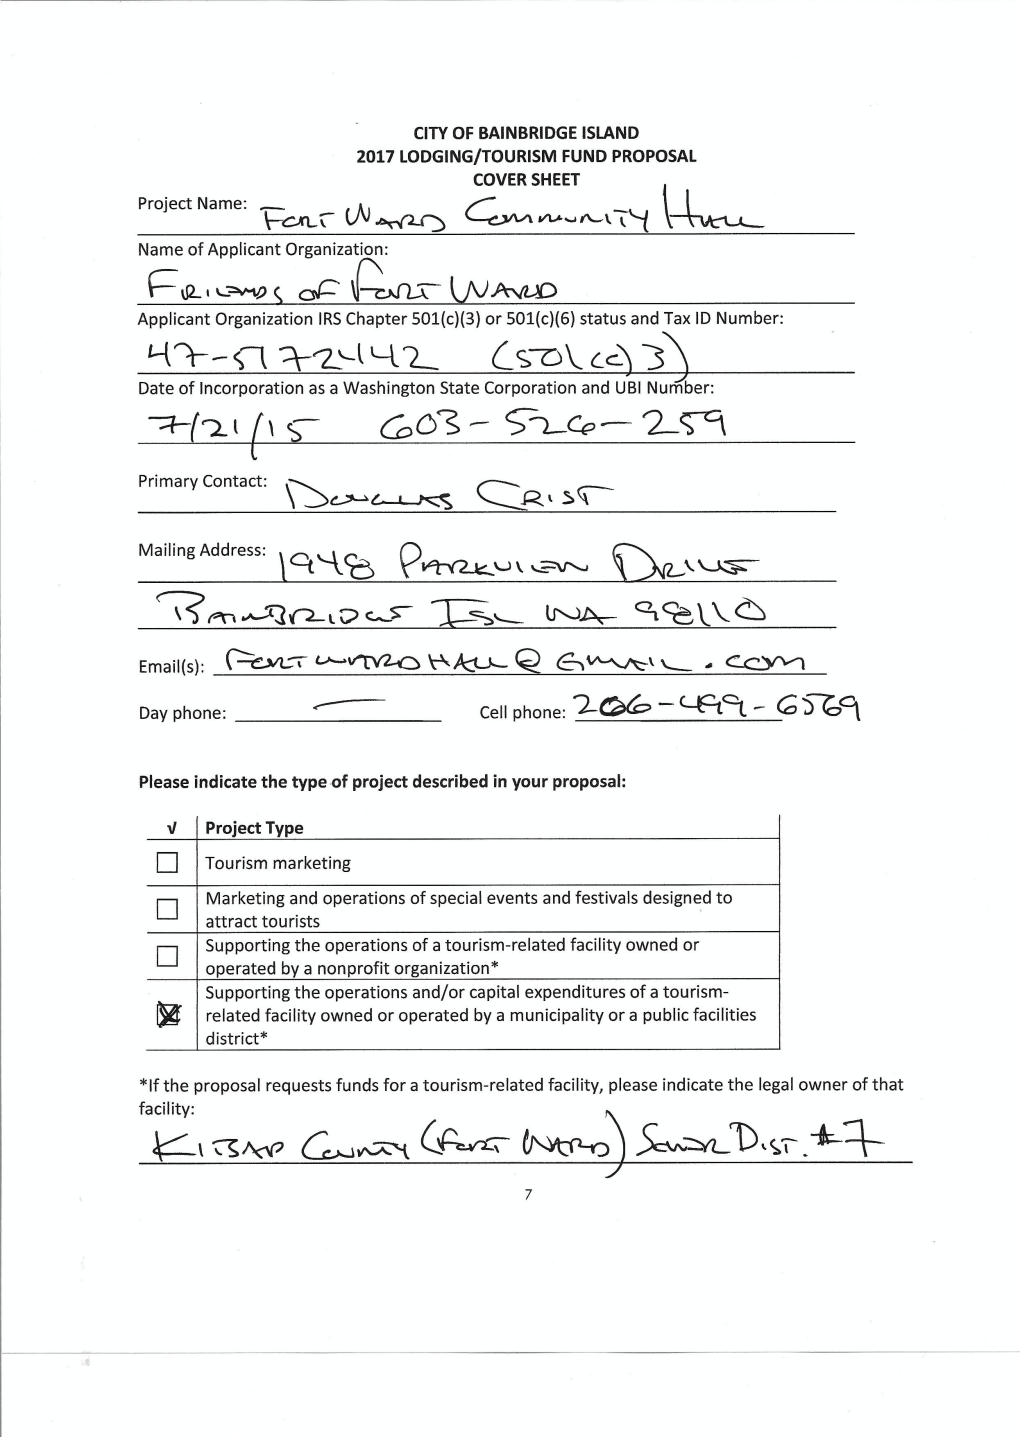 CITY OF BAINBRIDGE ISLAND
2017 LODGING/TOURISM FUND PROPOSAL
COVER SHEET
Project Name: FORT WARD COMMUNITY HALL
Name of Applicant Organization:
FRIENDS OF FORT WARD
Applicant Organization IRS Chapter 501(c)(3) or 501(c)(6) status and Tax ID Number:
47-5172442 (501(c)3)
Date of Incorporation as a Washington State Corporation and UBI Number:
7/21/15 603-526-259
Primary Contact: DOUGLAS CRIST
Mailing Address: 1948 PARKVIEW DRIVE
BAINBRIDGE ISL WA 98110
Email(s): FORTWARDHALL@GMAIL.COM
Day phone: — Cell phone: 206-499-6569
Please indicate the type of project described in your proposal:
√ Project Type
Tourism marketing
Marketing and operations of special events and festivals designed to
attract tourists
Supporting the operations of a tourism-related facility owned or
operated by a nonprofit organization*
Supporting the operations and/or capital expenditures of a tourism-
related facility owned or operated by a municipality or a public facilities
district*
*If the proposal requests funds for a tourism-related facility, please indicate the legal owner of that
facility:
KITSAP COUNTY (FORT WARD) SEWER DIST. #7
7